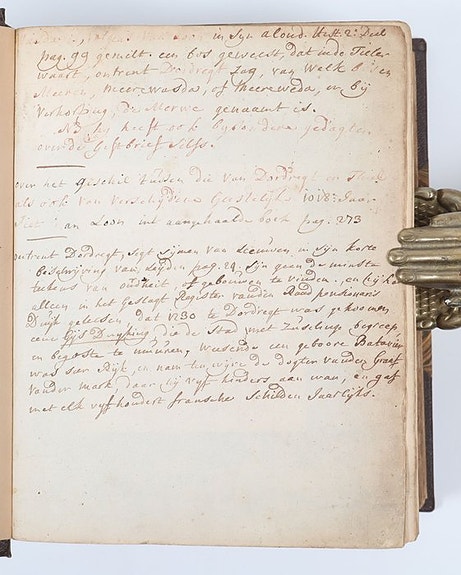 in Syn aloud. Hist. 2: Deel
pag. 99 gemelt. een bos geweest, dat inde Tieler
waart, ontrent Dordregt lag, van welk b
Merwen, Meerewasda, of Meereweda, en bij
Verhorting, de Merwe genaamt is.
NB hy heeft ook bysondere gedagten
over de giftbrief selfs.
over het geschil tussen die van Dordregt en Thiel
als ook van verscheyde Geestelyke 1018: Jaar
van Loon int aangehaalde boek pag. 273
ontrent Dordregt, segt Symen van Leeuwen in Syn korte
beschryving van Leyden pag. 24, Syn geen de minste
tekens van outheit, of gebouwen te vinden, en hy h
alleen in het geslagt Register vanden Raad pensionaris
Duyk gelesen dat 1230 te Dordregt was gekoomen,
eene Gijs Duyking die de Stad met Zuiseling begreep,
en begoste te muuren, weesende een geboore Batavier
was seer Rijk, en nam ten wyve de dogter vanden Graef
vander mark, daar hy vyf kinders aan wan, en gaf
met elk vyfhondert fransche schilden Jaarlyks.